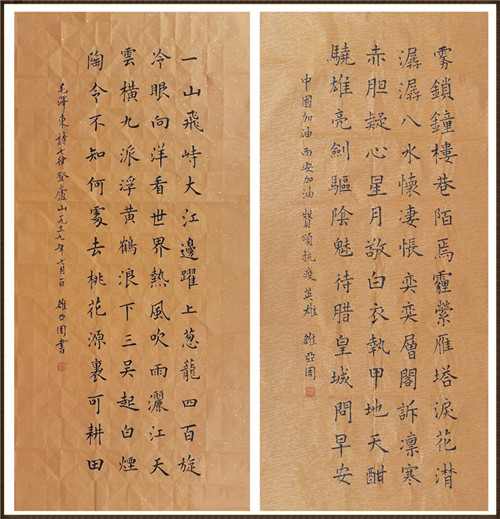 霧鎖鐘樓巷陌焉霾縈雁塔淚花潸
潺潺八水懷凄悵奕奕層閣訴凛寒
赤胆疑心星月敬白衣執甲地天酣
驍雄亮劍驅陰魅待腊皇城問早安
中國加油西安加油贊頌抗疫英雄 雒亞周
一山飛峙大江邊躍上葱龍四百旋
冷眼向洋看世界熱風吹雨灑江天
雲橫九派浮黃鶴浪下三吳起白煙
陶令不知何處去桃花源裏可耕田
毛澤東詩七律登廬山一九五九年七月一日 雒亞周書